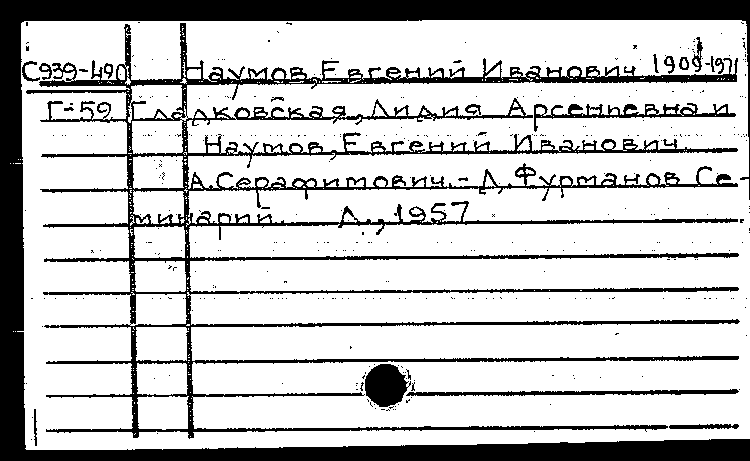 С939-490 Наумов, Евгений Иванович 1909-1971
Г-59 Гладковская, Лидия Арсеньевна и
Наумов, Евгений Иванович.
А.Серафимович.- Д.Фурманов Се-
минарий. Л., 1957